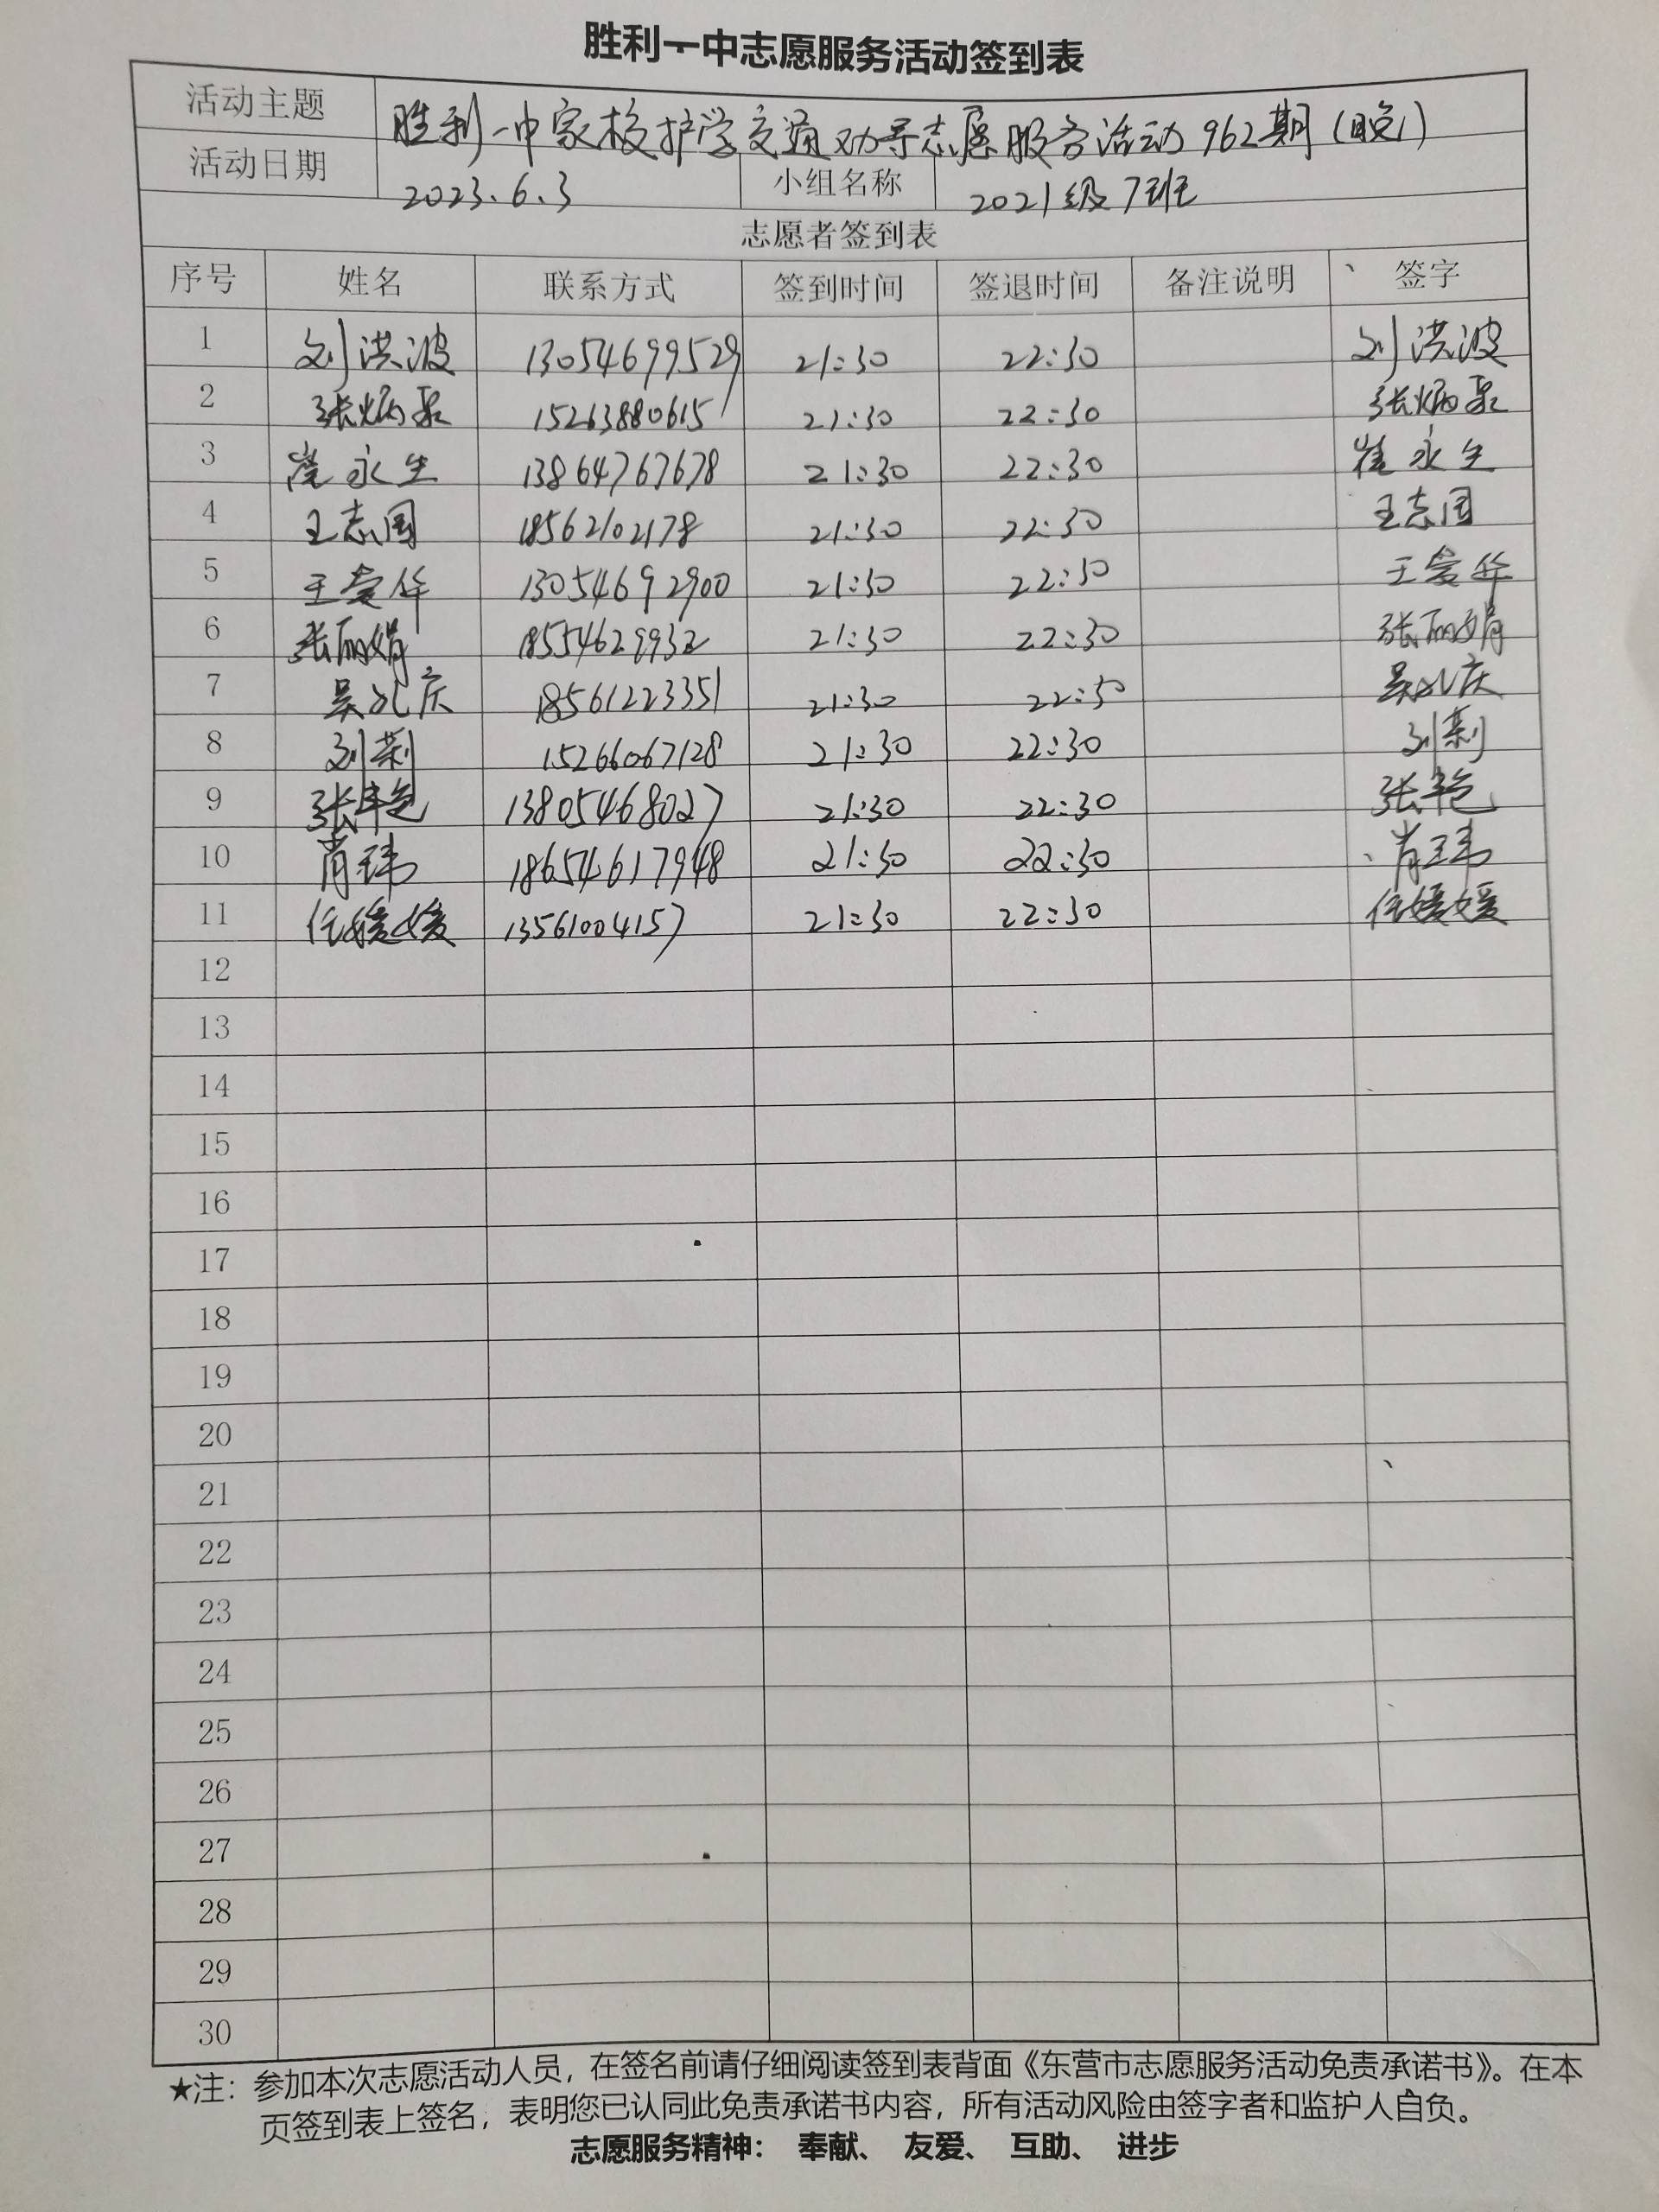 胜利一中志愿服务活动签到表
活动主题 胜利一中家校护学交通劝导志愿服务活动962期(晚)
活动日期 2023.6.3 小组名称 2021级7班
志愿者签到表
序号 姓名 联系方式 签到时间 签退时间 备注说明 签字
1 刘洪波 13054699529 21:30 22:30 刘洪波
2 张炳泉 15263880615 21:30 22:30 张炳泉
3 崔永生 13864767678 21:30 22:30 崔永生
4 王志国 18562102178 21:30 22:30 王志国
5 王爱华 13054692900 21:30 22:30 王爱华
6 张丽娟 18554629932 21:30 22:30 张丽娟
7 吴兆庆 18561223351 21:30 22:30 吴兆庆
8 15266067128 21:30 22:30
9 张艳 13805468027 21:30 22:30 张艳
10 肖玮 18654617948 21:30 22:30 肖玮
11 任媛媛 13561004157 21:30 22:30 任媛媛
12
13
14
15
16
17
18
19
20
21
22
23
24
25
26
27
28
29
30
★注：参加本次志愿活动人员，在签名前请仔细阅读签到表背面《东营市志愿服务活动免责承诺书》。在本
页签到表上签名，表明您已认同此免责承诺书内容，所有活动风险由签字者和监护人自负。
志愿服务精神： 奉献、 友爱、 互助、 进步